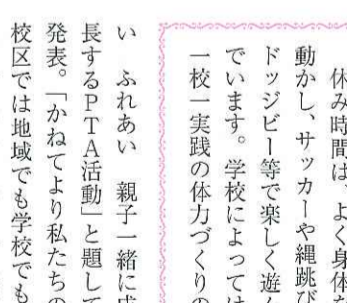 休み時間は、よく身体を
動かし、サッカーや縄跳び
ドッジビー等で楽しく遊ん
でいます。学校によっては
一校一実践の体力づくりの
い ふれあい 親子一緒に成
長するPTA活動」と題して
発表。「かねてより私たちの
校区では地域でも学校でも